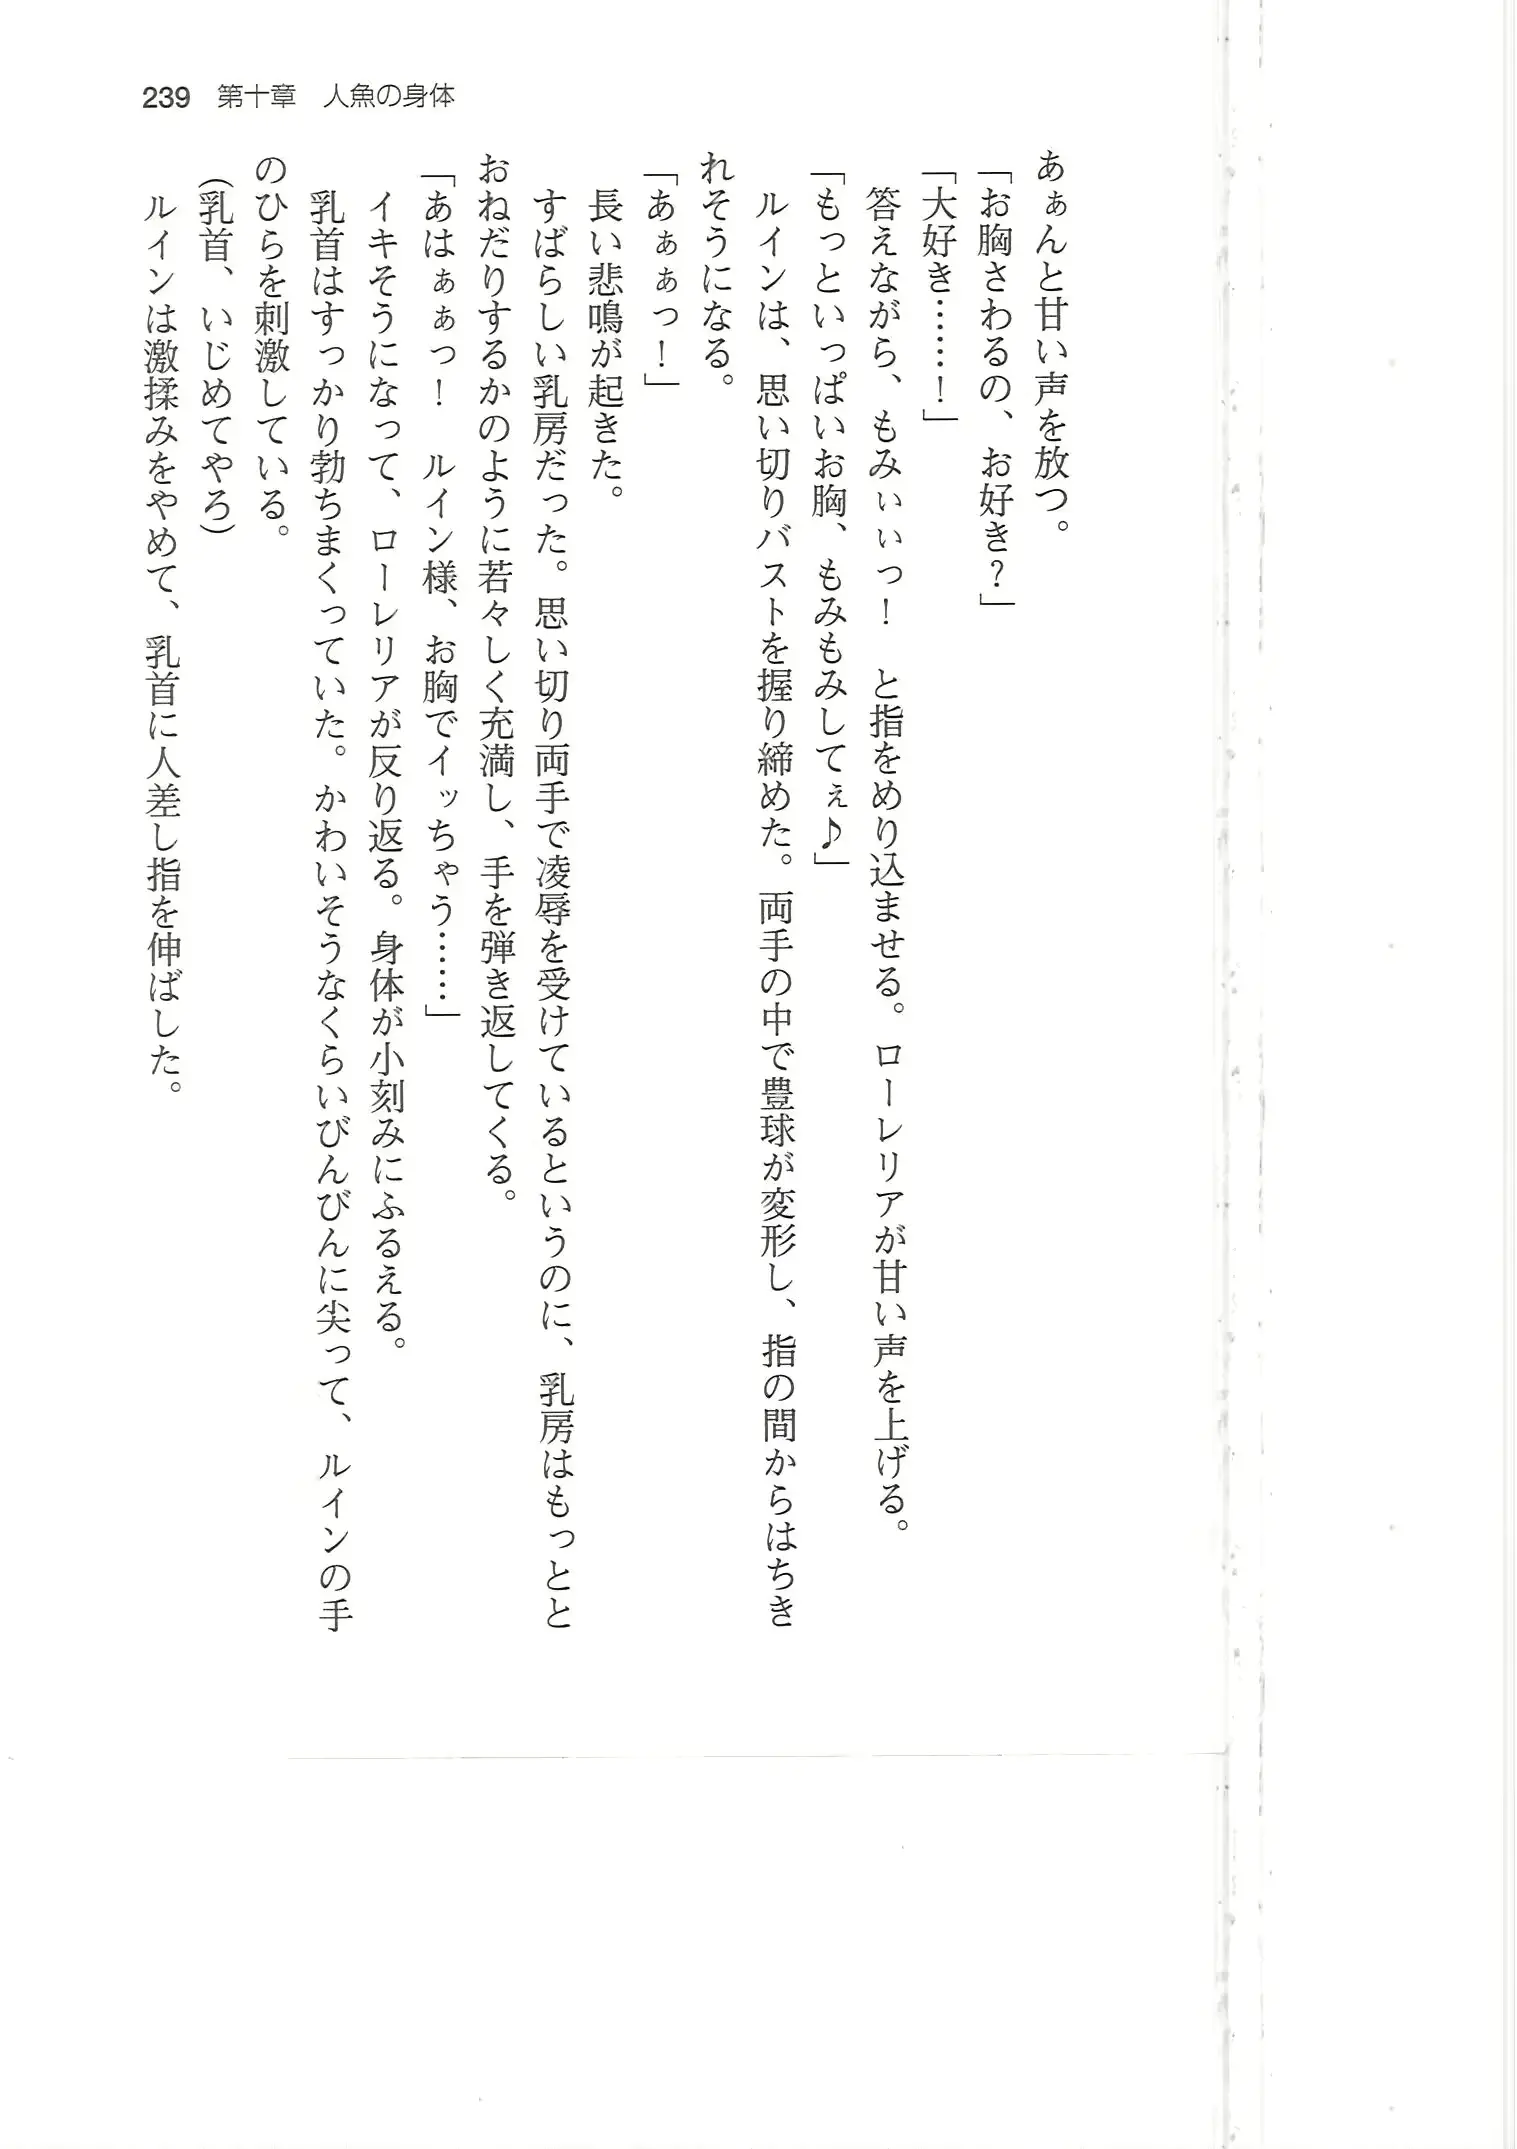 239 第十章 人魚の身体
あぁんと甘い声を放つ。
「お胸さわるの、お好き？」
「大好き……！」
答えながら、もみぃぃっ！　と指をめり込ませる。ローレリアが甘い声を上げる。
「もっといっぱいお胸、もみもみしてぇ♪」
ルインは、思い切りバストを握り締めた。両手の中で豊球が変形し、指の間からはちき
れそうになる。
「あぁぁっ！」
長い悲鳴が起きた。
すばらしい乳房だった。思い切り両手で凌辱を受けているというのに、乳房はもっとと
おねだりするかのように若々しく充満し、手を弾き返してくる。
「あはぁぁっ！　ルイン様、お胸でイッちゃう……」
イキそうになって、ローレリアが反り返る。身体が小刻みにふるえる。
乳首はすっかり勃ちまくっていた。かわいそうなくらいびんびんに尖って、ルインの手
のひらを刺激している。
（乳首、いじめてやろ）
ルインは激揉みをやめて、乳首に人差し指を伸ばした。